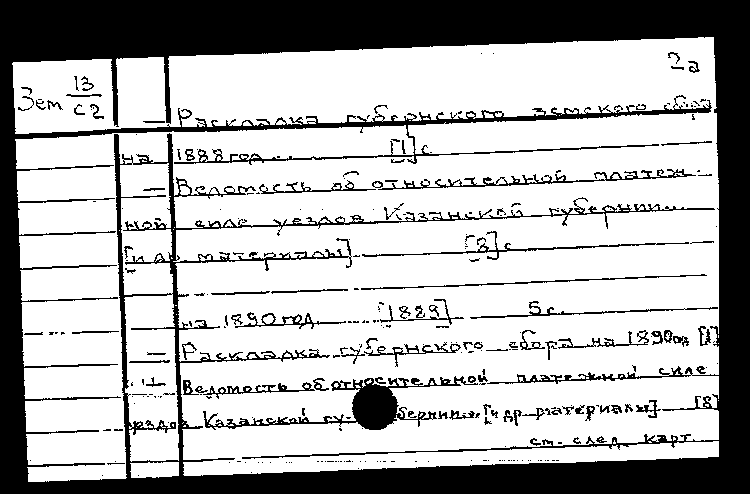 2а
Зем 13/С2 — Раскладка губернского земского сбора
на 1888 год... [1] с
— Ведомость об относительной платеж-
ной силе уездов Казанской губернии...
[и др. материалы] [8] с
на 1890 год [1889] 5 с.
— Раскладка губернского сбора на 1890 год [1]
— Ведомость об относительной платежной силе
уездов Казанской гу- бернии... [и др материалы] [8]
см. след карт.